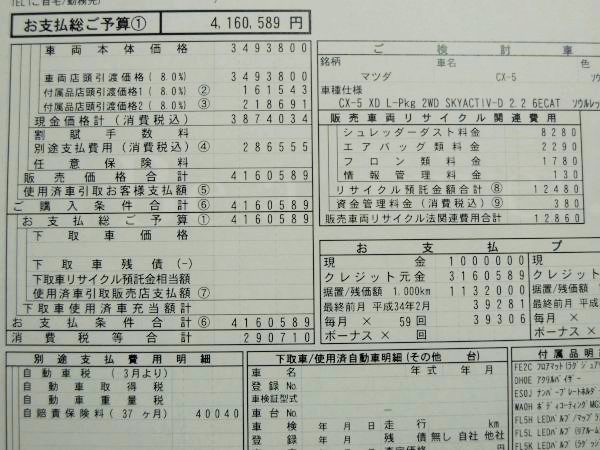 TEL(ご自宅/勤務先)
お支払総ご予算① 4,160,589 円
車両本体価格 3493800
車両店頭引渡価格( 8.0%) 3493800
付属品店頭引渡価格1( 8.0%) ② 161543
付属品店頭引渡価格2( 8.0%) ③ 218691
現金価格計(消費税込) 3874034
割賦手数料
別途支払費用(消費税込) ④ 286555
任意保険料
販売価格合計 4160589
使用済車引取お客様支払額 ⑤
ご購入条件合計 ⑥ 4160589
お支払総ご予算 ① 4160589
下取車価格
下取車残債(-)
下取車リサイクル預託金相当額
使用済車引取販売店支払額 ⑦
下取車使用済車充当額計
お支払条件合計 ⑥ 4160589
消費税等合計 290710
別途支払費用明細
自動車税 ( 3月より)
自動車取得税
自動車重量税
自賠責保険料( 37 ヶ月) 40040
ご検討車
銘柄 車名 色
マツダ CX-5 ソウ
車種仕様
CX-5 XD L-Pkg 2WD SKYACTIV-D 2.2 6ECAT ソウルレッ
販売車両リサイクル関連費用
シュレッダーダスト料金 8280
エアバッグ類料金 2290
フロン類料金 1780
情報管理料金 130
リサイクル預託金額合計 ⑧ 12480
資金管理料金(消費税込) ⑨ 380
販売車両リサイクル法関連費用合計 12860
お支払プ
現金 1000000 現
クレジット元金 3160589 クレジ
据置/残価額 1.000km 1132000 据置/残
最終前月 平成34年2月 39281 最終前月
毎月 × 59 回 39306 毎月
ボーナス × 回 ボーナス
下取車/使用済自動車明細(その他 台)
車名 年式 年 月
登録No.
車検証型式
車台No. −
車検 年 月 日 走行 km
登録 年 月 日 残債 無し 自社 他社
付属品明
FE2C フロアマット(ラグジュア
DH0E アクリルバイザー
ES0J ナンバープレートホルダー
WA0H ボディコーティングMG
FL5H LEDバルブ/マップラン
FL5L LEDバルブ(リアルーム)